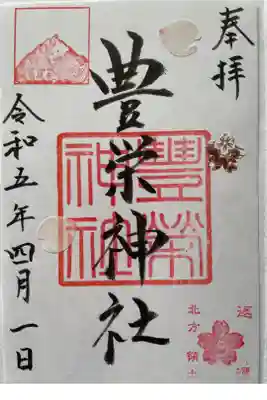 奉拝
豊栄神社
豐榮
神社
令和五年四月一日
北方領土